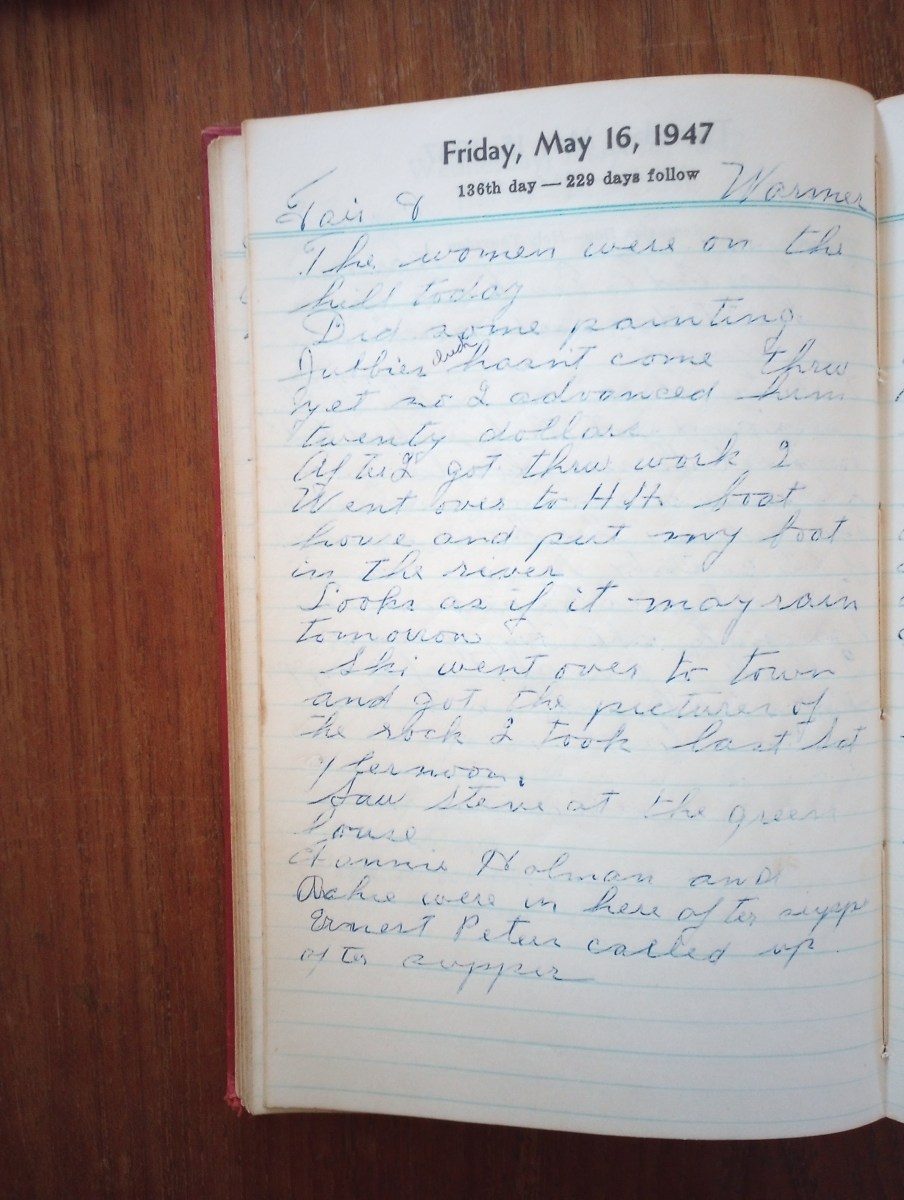 Friday, May 16, 1947
136th day — 229 days follow
Fair & Warmer
The women were on the
hill today
Did some painting
check hasn't come thru
yet so I advanced him
twenty dollars
After I got thru work I
Went over to H H boat
house and put my boat
in the river
Looks as if it may rain
tomorrow
Ski went over to town
and got the pictures of
the rock I took last Sat
afternoon.
Saw Steve at the green
house
Holman and
were in here after suppe
Ernest Peters called up
after supper